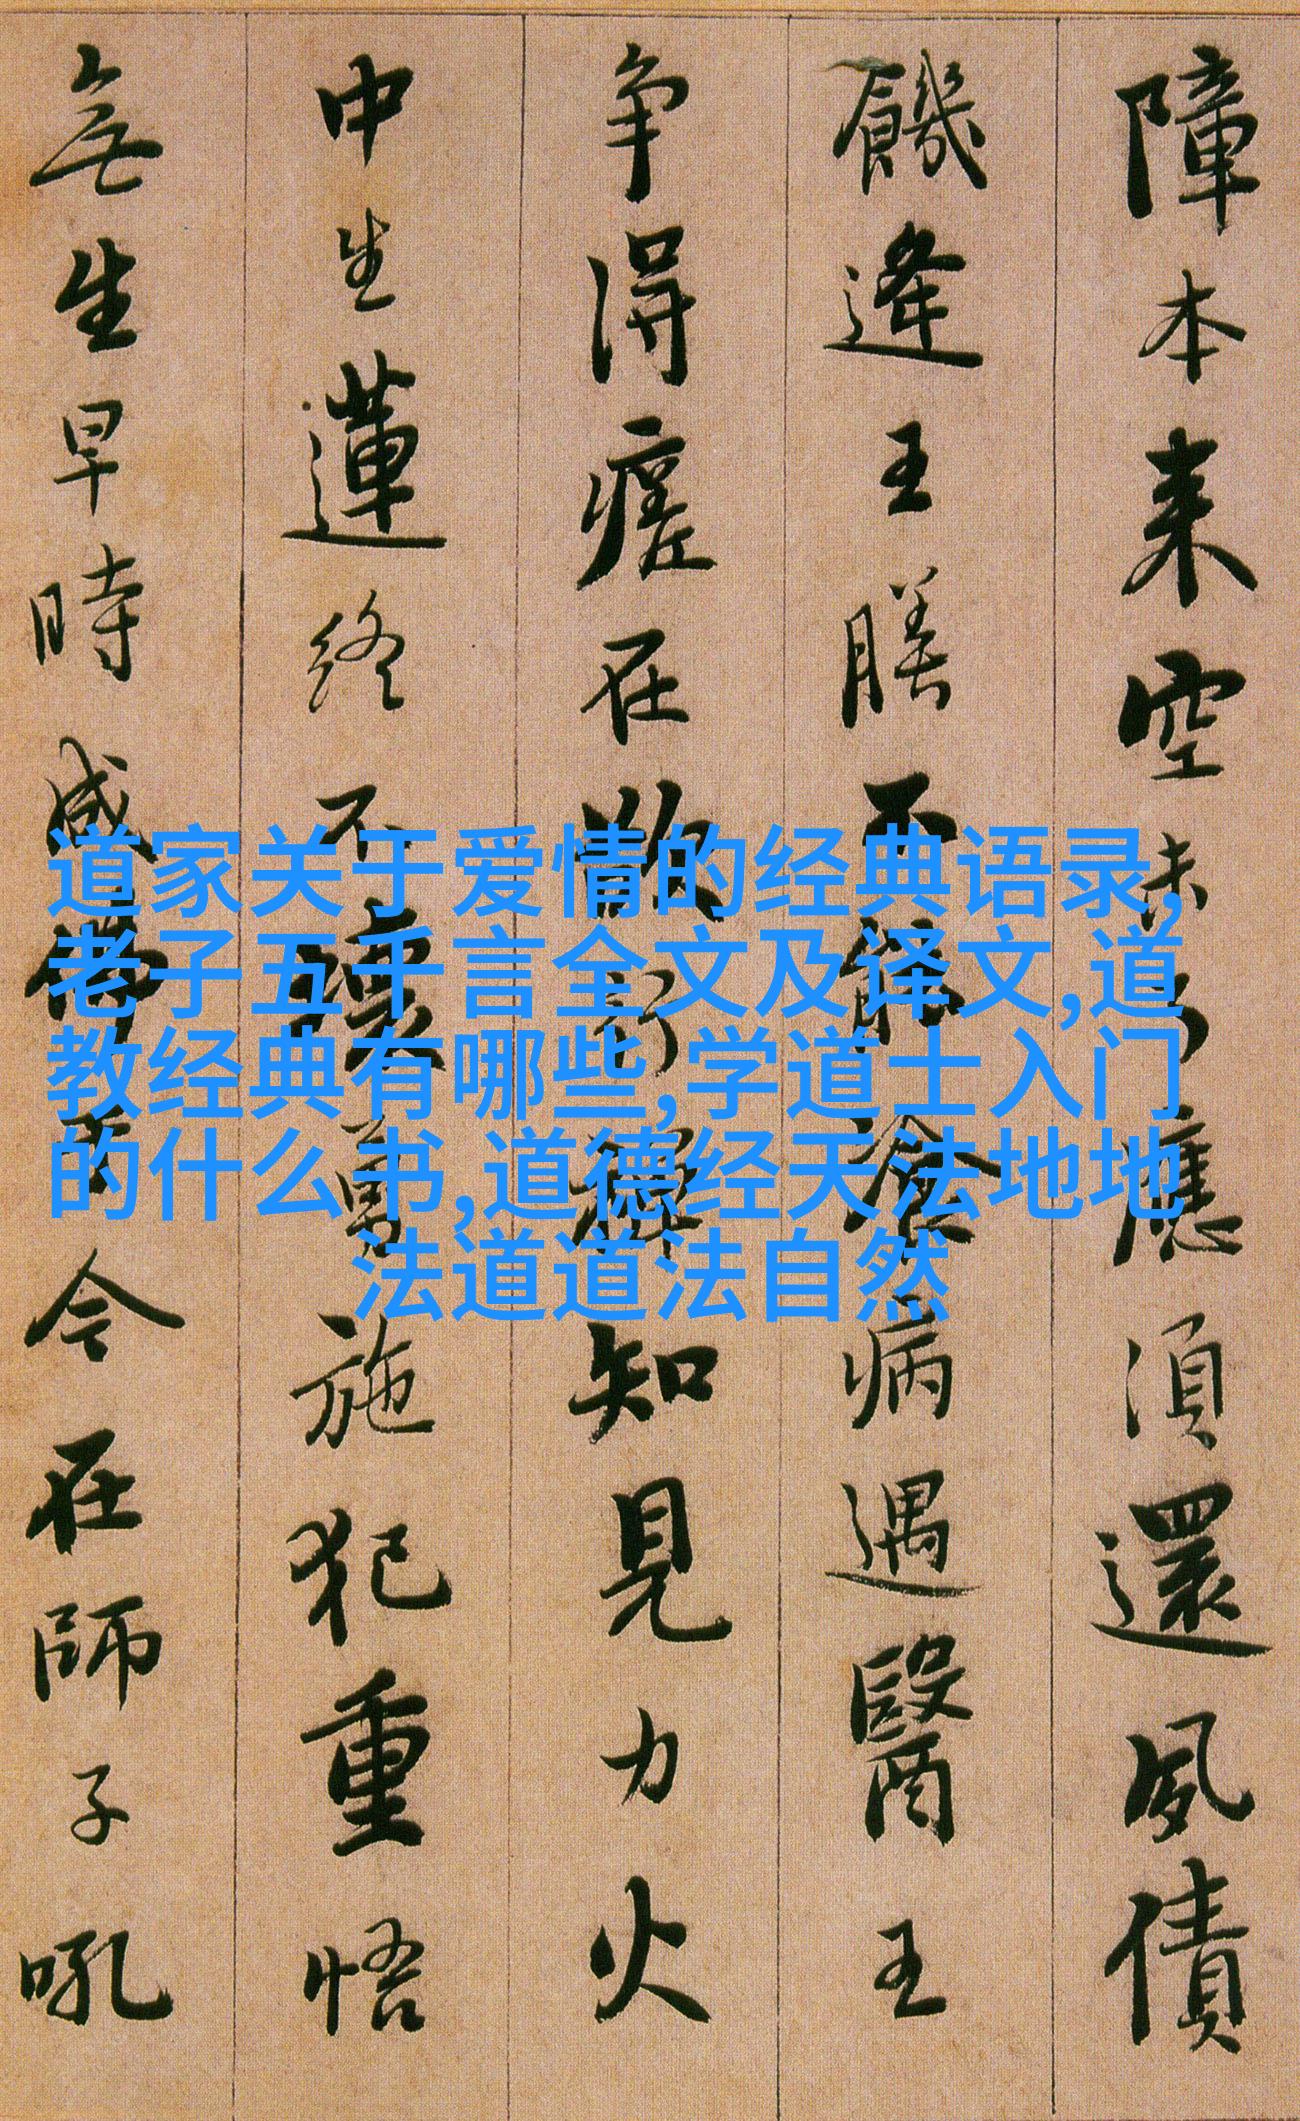 障本来空未了應須還夙債
饑逢王膳不能飡病遇醫王
争得瘥在欲行禪知見力火
中生蓮終不壞勇施犯重悟
無生早時成佛于今在師子吼
道家关于爱情的经典语录,
老子五千言全文及译文,道
教经典有哪些,学道士入门
的什么书,道德经天法地地
法道道法自然